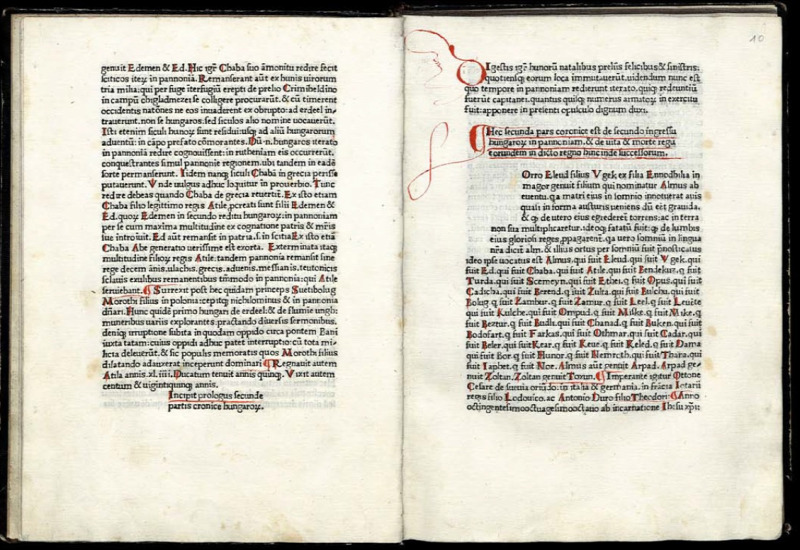 genuit Edemen & Ed. Hic igit̃ Chaba suo ãmonitu redire fecit
sciticos iteꝝ in pannoniã. Remanserant aũt ex hunis uirorum
tria milia: qui per fuge iterfugiũ erepti de prelio Crimiheldino
in campũ chigladmezei se colligere procurarũt. & cũ timerent
occidentis natões ne eos inuaderent ex obrupto: ad erdeel in-
trauerunt. non se hungaros: sed siculos alio nomine uocauerũt.
Isti etenim siculi hunoꝝ sunt residui: usq̃ ad aliũ hungarorum
aduentũ: in cãpo prefato cõmorantes. Dũ .n. hungaros iterato
in pannoniã redire cognouissent: in rutheniam eis occurrerũt.
conquestrantes simul pannonie regionem. ubi tandem in eadẽ
sorte permanserunt. Iidem nanq̃ siculi Chabã in grecia perisse
putauerunt. Vnde uulgus adhuc loquitur in prouerbio. Tunc
redire debeas quando Chaba de grecia reuertit̃. Ex isto etiam
Chaba filio legittimo regis Atile. p̃creati sunt filii Edemen &
Ed. quoꝝ Edemen in secundo reditu hungaroꝝ: in pannoniam
per se cum maxima multitudine ex cognatione patris & mr̃is
sue introiuit. Ed aũt remansit in patria .s. in scitia Ex isto etiã
Chaba Abe generatio uerissime est exorta. Exterminata itaq̃
multitudine filioꝝ regis Atile. tandem pannonia remansit sine
rege decem ãnis. ulachis, grecis, aduenis, messianis, teutonicis
sclauis exulibus remanentibus tm̃modo in pannonia: qui Atile
seruiebant. Surrexit post hec quidam princeps Suetibolug
Moroth filius in polonia: cepitq̃ nichilominus & in pannonia
dñari. Hunc quidẽ primo hungari de erdeel: & de flumine ungh:
muneribus variis explorantes, practando diuersis sermonibus,
deniq̃ irruptione subita in quodam oppido circa pontem Bani
iuxta tatam: cuius oppidi adhuc patet interruptio: cũ tota mi-
licia deleuerũt. & sic populis memoratis quos Moroth filius
dilatando adauxerat inceperunt dominari Regnauit autem
Atila annis. xl. iiii. Ducatum tenuit annis quinq̃. Vixit autem
centum & uigintiquinq̃ annis.
Incipit prologus secunde
partis cronice hungaroꝝ.
10
Digestis igit̃ hunorũ natalibus preliis felicibus & sinistris:
quotiensq̃ eorum loca immutauerũt. uidendum nunc est
quo tempore in pannoniam redierunt iterato. quiq̃ redeuntiũ
fuerũt capitanei. quantus quisq̃ numerus armatoꝝ in exercitu
fuit: apponere in presenti opusculo dignum duxi.
Hec secunda pars coronice est de secundo ingressu
hungaroꝝ in pannoniam. & de uita & morte regũ
eorundem in dicto regno hinc inde successorum.
Orro Eleud filius Vgek ex filia Ennodbilia in
magor genuit filium qui nominatur Almus ab
euentu. qa matri eius in somnio innotuerat auis
quasi in forma austuris ueniens dũ eẽt grauida.
& qp̃ de utero eius egrederet̃ torrens. ac in terra
non sua multiplicaretur. ideoq̃ fatatũ fuit: qp̃ de lumbis
eius gloriosi reges .p̃pagarent̃. qa uero somniũ in lingua
nr̃a dicit̃ alm. & illius ortus per somniũ fuit p̃nosticatus
ideo ip̃se uocatus est Almus, qui fuit Eleud. qui fuit Vgek. qui
fuit Ed. qui fuit Chaba. qui fuit Atile. qui fuit Bendekuz. q̃ fuit
Turda. qui fuit Scemeyn. q̃ fuit Ethei. q̃ fuit Opus. qui fuit
Cadicha. qui fuit Berend. q̃ fuit Zulta. qui fuit Bulchu. qui fuit
Bolug. q̃ fuit Zambur. q̃ fuit Zamur. q̃ fuit Leel. q̃ fuit Leuẽte
qui fuit Kulche. qui fuit Ompud. q̃ fuit Miske. q̃ fuit Mike. q̃
fuit Beztur. q̃ fuit Budli. qui fuit Chanad. q̃ fuit Buken. qui fuit
Bodofart. q̃ fuit Farkas. qui fuit Othmar. qui fuit Cadar. qui
fuit Beler. qui fuit Kear. q̃ fuit Keue. q̃ fuit Keled. q̃ fuit Dama
qui fuit Bor. q̃ fuit Hunor. q̃ fuit Nemroth. qui fuit Thara. qui
fuit Iaphet. q̃ fuit Noe. Almus aũt genuit Arpad. Arpad ge-
nuit Zoltan, Zoltan genuit Toxun. Imperante igitur Ottone
Cesare de sueuia oriũdo. in italia & germania. in frãcia Lotarii
regis filio Lodouico. ac Antonio Duro filio Theodori: Anno
octingentesimooctuagesimooctauo ab incarnatione Ihesu xp̃i: